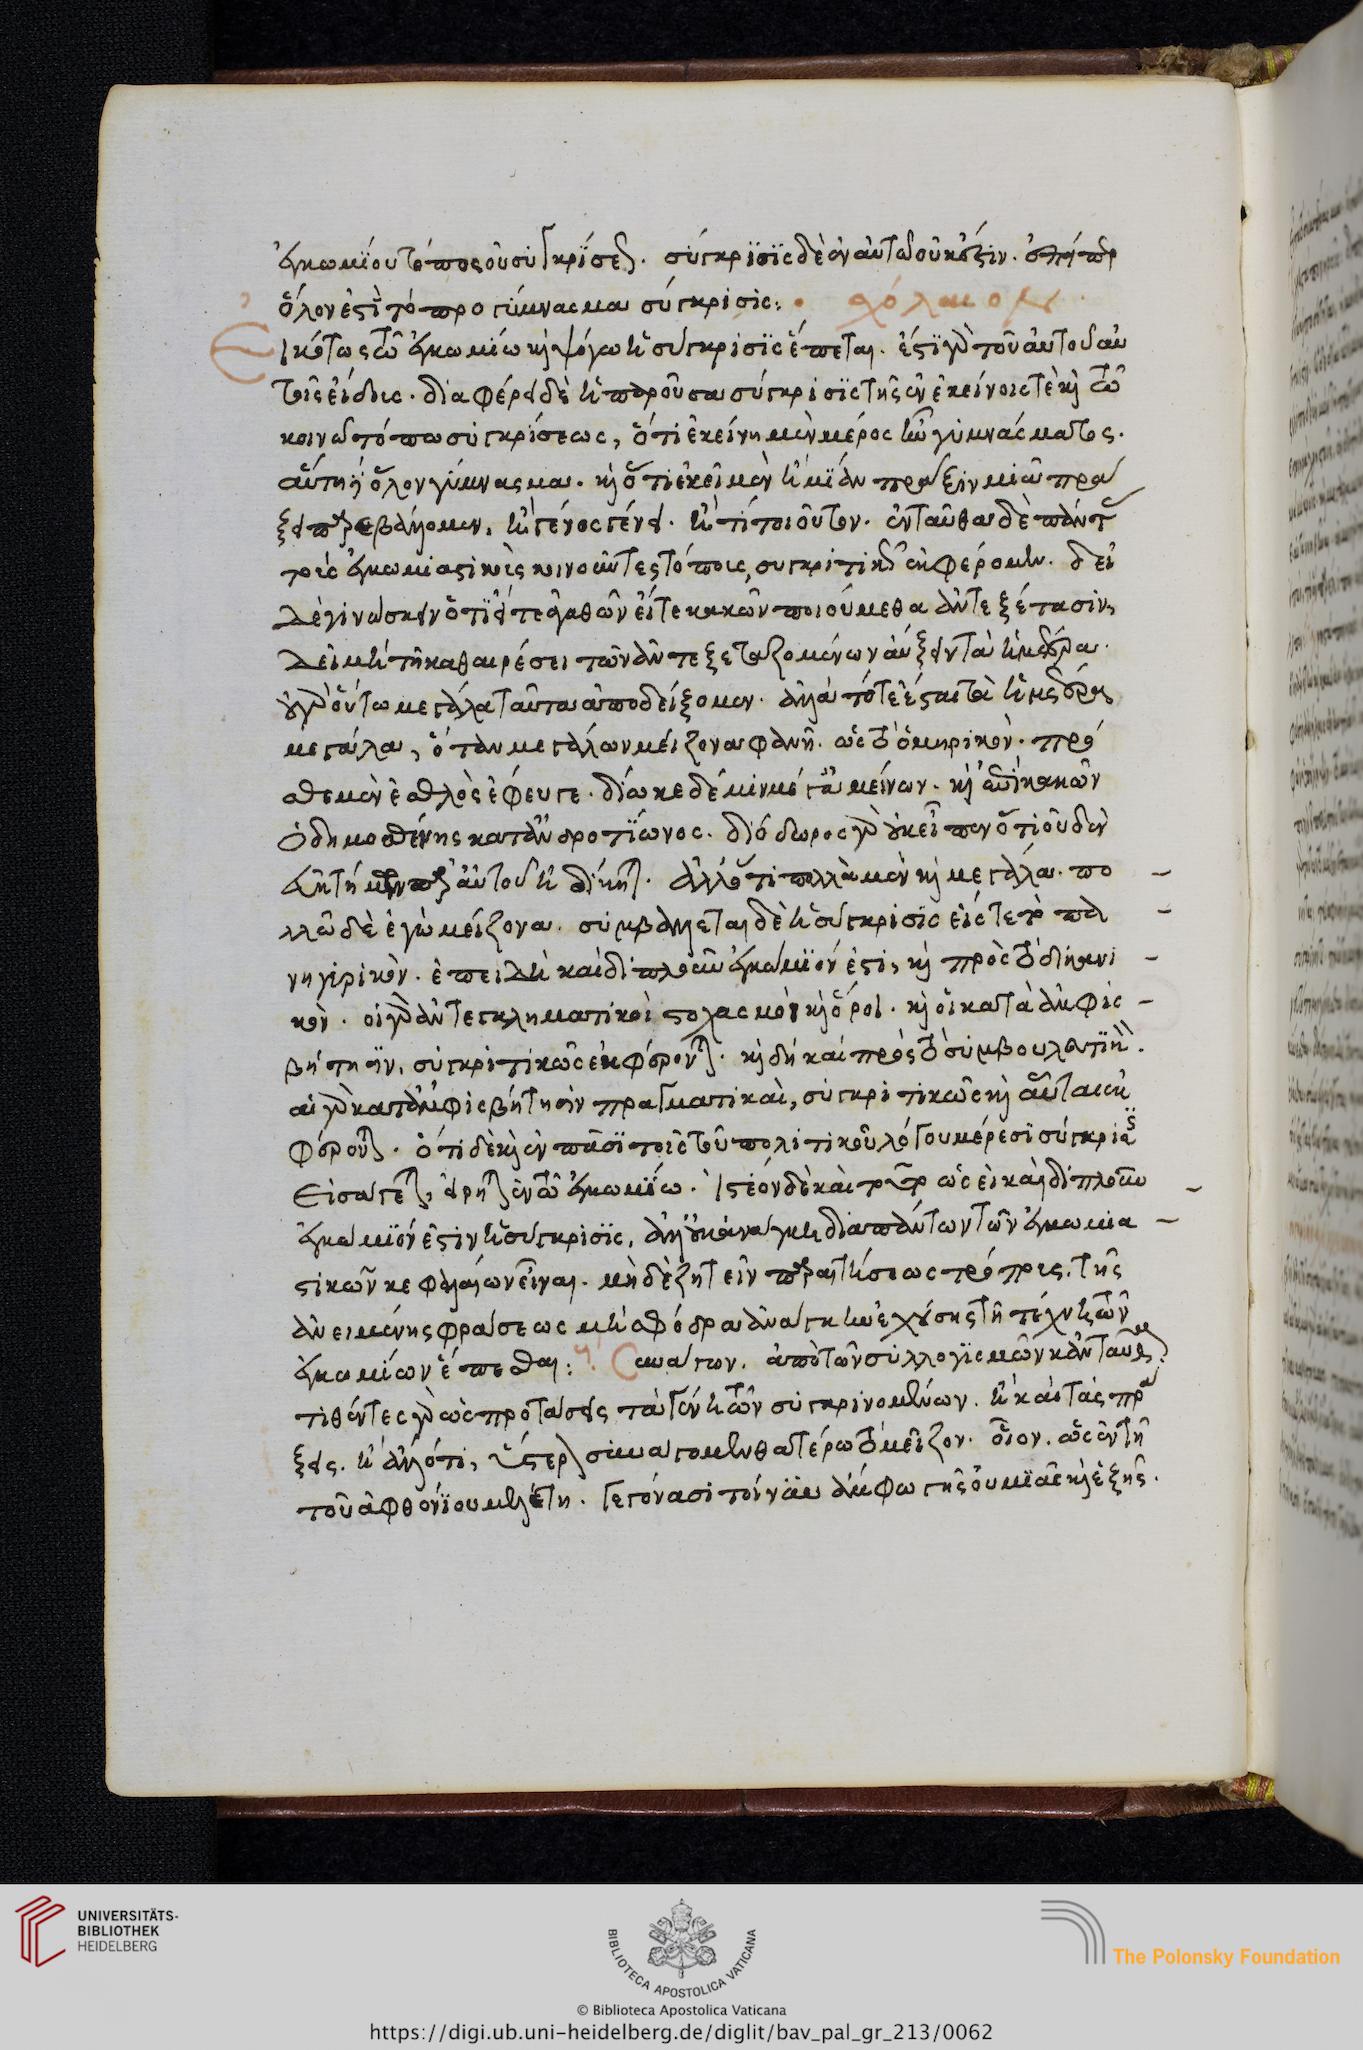 ἐγκωμίου τόπος οὐ συγκρίσεως. σύγκρισις δὲ ἐν αὐτῶ οὐκ ἔστιν. ἐπείπερ
ὅλον ἐστὶ τὸ προγύμνασμα σύγκρισις: σχόλιον
Εἰκότως τῶ ἐγκωμίω καὶ ψόγω ἡ σύγκρισις ἕπεται. ἔστι γὰρ τοῦ αὐτοῦ αὐ
τοῖς εἴδους. διαφέρει δὲ ἡ παροῦσα σύγκρισις τῆς ἐν ἐκείνοις τὲ καὶ τῶ
κοινῶ τόπω συγκρίσεως, ὅτι ἐκείνη μὲν μέρος ἦν γυμνάσματος.
αὕτη ἡ ὅλον γύμνασμα. καὶ ὅτι ἐκεῖ μὲν ἢ μίαν πρᾶξιν μιᾶ πρά
ξει παρεβάλλομεν, ἢ γένος γένει. ἤ τι τοιοῦτον. ἐνταῦθα δὲ πάντας
τοῖς ἐγκωμιαστικοῖς κινοῦντες τόποις, συγκριτικῶς ἐκφέρομεν. δεῖ
δὲ γινώσκειν ὅτι εἴτε ἀγαθῶν εἴτε κακῶν ποιούμεθα ἀντεξέτασιν,
δεῖ μὴ τῆ καθαιρέσει τῶν ἀντεξεταζομένων αὔξειν τὰ ἡμέτερα.
οὐ γὰρ οὕτω μεγάλα ταῦτα ἀποδείξομεν. ἀλλὰ τότε ἔσται τὰ ἡμέτερα
μεγάλα, ὅταν μεγάλων μείζονα φανῆ. ὡς τὸ ὁμηρικόν. πρό
σθε μὲν ἐσθλὸς ἔφευγε. δίωκε δέ μιν μέγ' ἀμείνων. καὶ ἐπὶ κακῶν
ὁ δημοσθένης κατὰ ἀνδροτίωνος. διόδωρος γὰρ οὐκ εἶπεν ὅτι οὐδὲν
πολλὰ μὲν καὶ μεγάλα. πο
λλῶ δὲ ἐγὼ μείζονα. συμβάλλεται δὲ ἡ σύγκρισις εἴς τε τὸ πα
νηγυρικόν. ἐπειδὴ καὶ διπλοῦν ἐγκώμιόν ἐστι, καὶ πρὸς τὸ δικανι
κόν. οἱ γὰρ ἀντεγκληματικοὶ στοχασμοὶ καὶ ὅροι. καὶ οἱ κατὰ ἀμφισ
βήτησιν, συγκριτικῶς ἐκφέρονται. καὶ δὴ καὶ πρὸς τὸ συμβουλευτικόν.
αἱ γὰρ κατ' ἀμφισβήτησιν πραγματικαὶ, συγκριτικῶς καὶ αὗται ἐκ
φέρονται. ὅτι δὲ καὶ ἐν πᾶσι τοῖς τοῦ πολιτικοῦ λόγου μέρεσι σύγκρισις
εἰσάγεται, εἴρηται ἐν τῶ ἐγκωμίω. ἰστέον δὲ καὶ τοῦτο ὡς εἰ καὶ διπλοῦν
ἐγκώμιόν ἐστιν ἡ σύγκρισις, ἀλλ' οὐκ ἀνάγκη διὰ πάντων τῶν ἐγκωμια
στικῶν κεφαλαίων εἶναι. μηδὲ ζητεῖν παραιτήσεως τρόπους. τῆς
ἀνειμένης φράσεως μὴ σφόδρα ἀνάγκην ἐχούσης τῆ τέχνη τῶν
ἐγκωμίων ἕπεσθαι: Συνάγων. ἀπὸ τῶν συλλογισμῶν κἀνταῦθα
τιθέντες γὰρ ὡς προτάσεις τὰ γένη τῶν συγκρινομένων. ἢ καὶ τὰς πρά
ξεις. ἢ ἄλλό τι, ὕστερον συνάγομεν θατέρω τὸ μεῖζον. οἷον. ὡς ἐν τῆ
τοῦ ἀφθονίου μελέτη. γεγόνασι τοίνυν ἄμφω γῆς οὐ μιᾶς καὶ ἑξῆς.
UNIVERSITÄTS-
BIBLIOTHEK
HEIDELBERG
BIBLIOTECA APOSTOLICA VATICANA
The Polonsky Foundation
© Biblioteca Apostolica Vaticana
https://digi.ub.uni-heidelberg.de/diglit/bav_pal_gr_213/0062